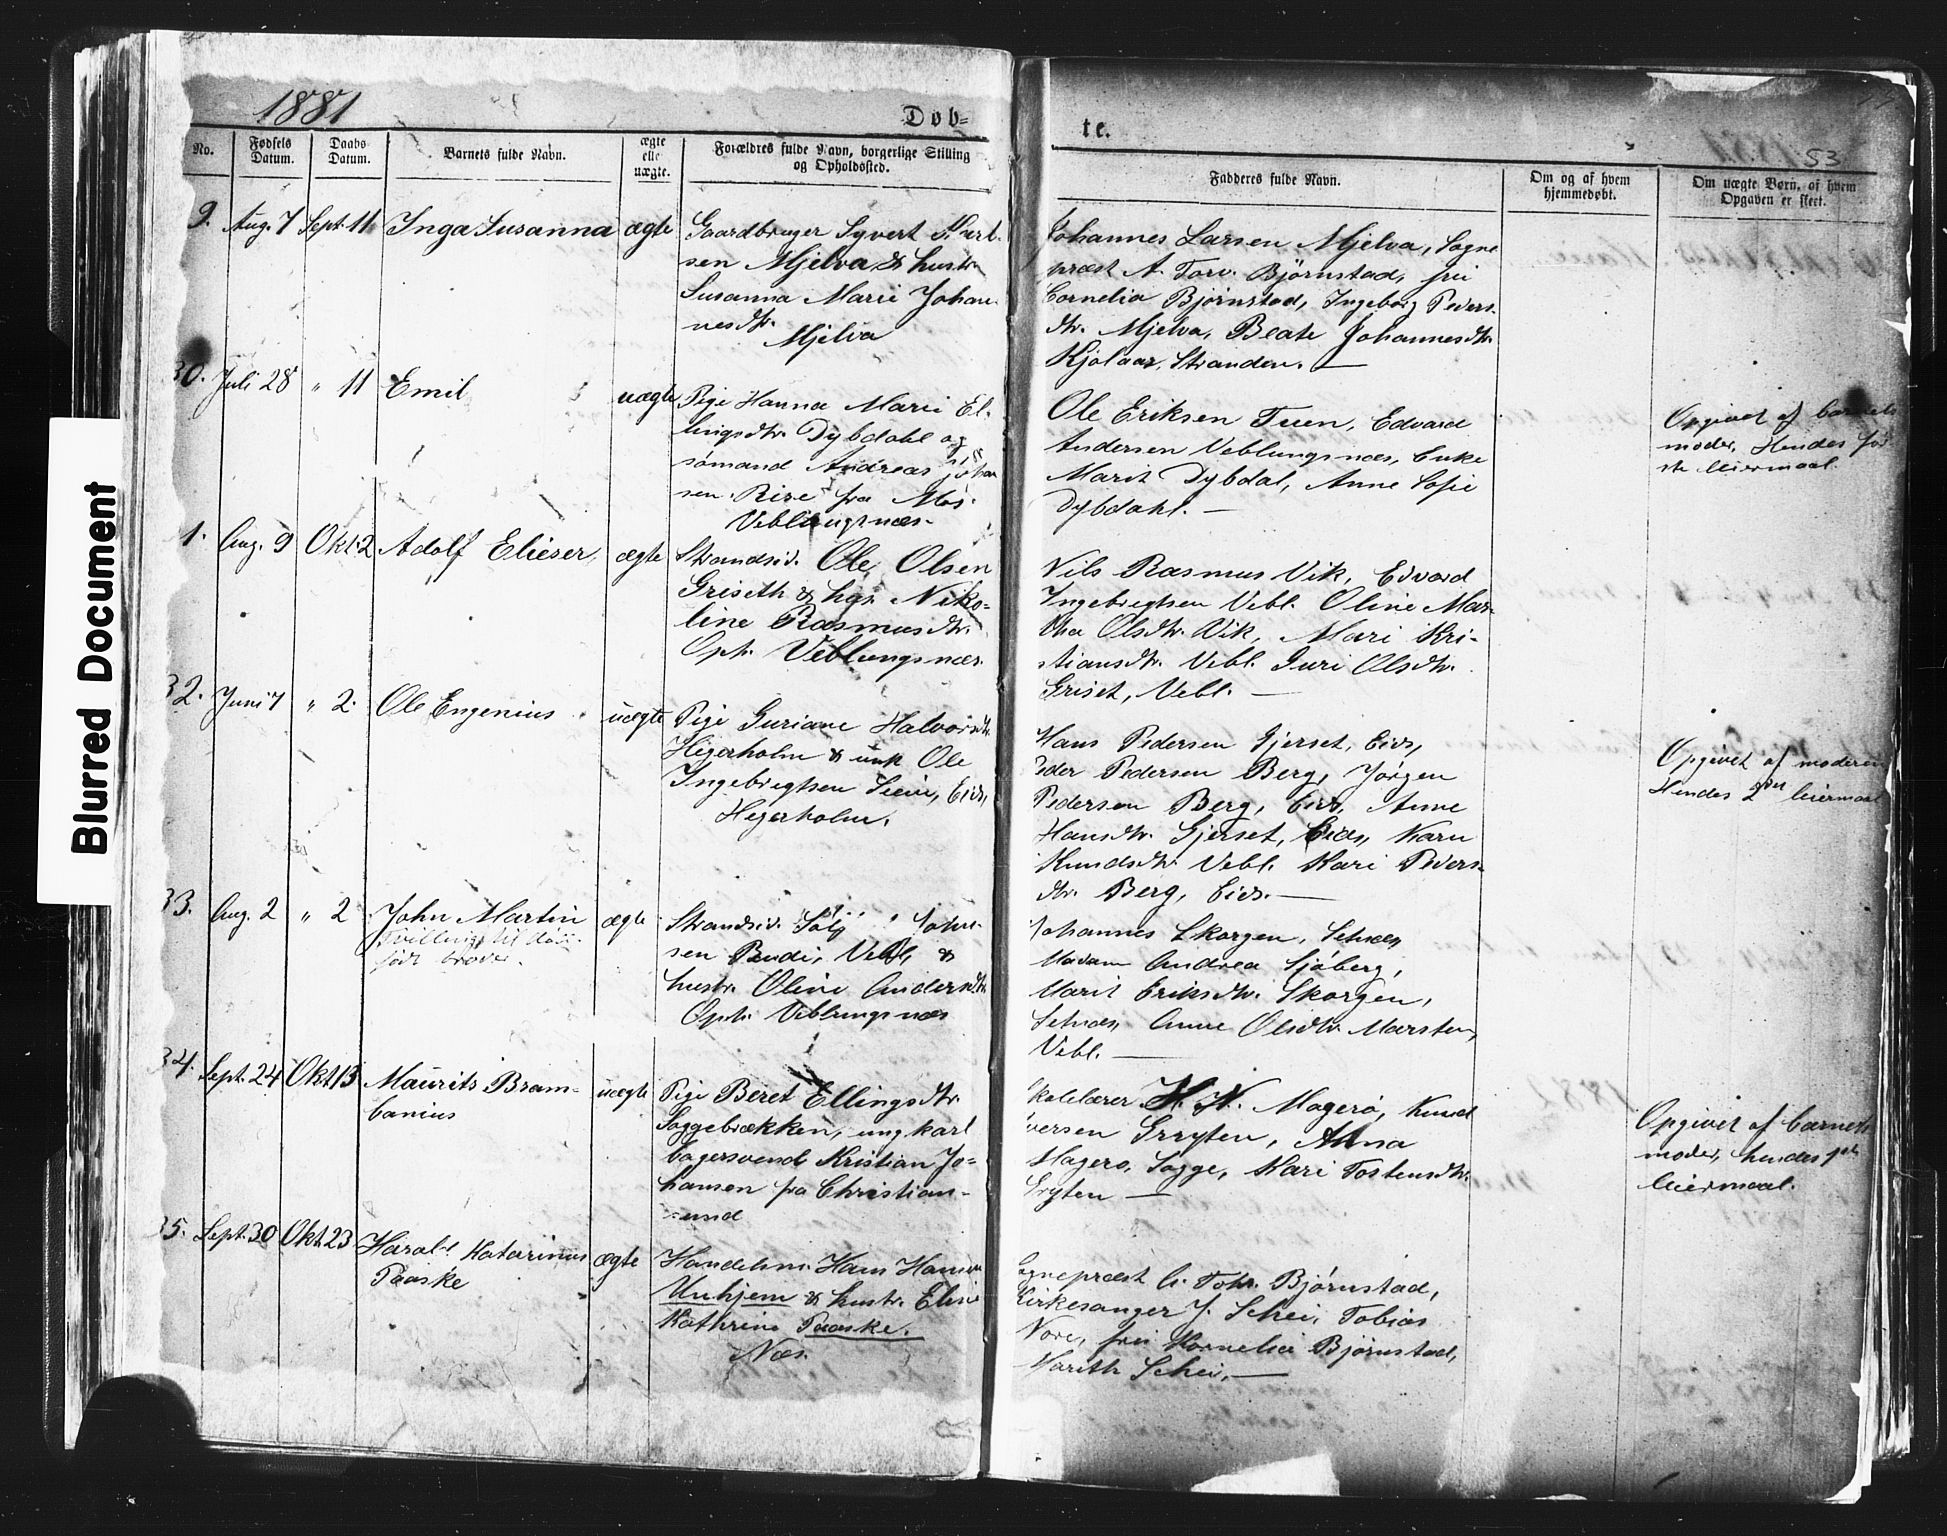 Blurred Document
1881
Døb=
te.
53
No.
Fødsels Datum.
Daabs Datum.
Barnets fulde Navn.
ægte elle uægte.
Forældres fulde Navn, borgerlige Stilling og Opholdssted.
Fadderes fulde Navn.
Om og af hvem hjemmedøbt.
Om uægte Børn, af hvem Opgaven er skeet.
9. Aug. 7 Sept. 11 Inga Susanna ægte
Gaardbruger Syvert
sen Mjelva & hustr.
Susanna Marie Johan
nesdtr.
Mjelva
Johannes Larsen Mjelva, Sogne
præst A. Torv. Björnstad, frøi
Cornelia Björnstad, Ingeborg Peders
dtr. Mjelva, Beate Johannesdtr.
Stranden. —
30. Juli 28 " 11 Emil uægte
Pige Hanna Marie El-
lingsdtr. Dybdahl og
sømand Andreas Johan
sen fra Mos.
Veblungsnæs.
Ole Eriksen Tuen, Edvard
Andersen Veblungsnæs, Enke
Marit Dybdal, Anne Sofie
Dybdahl. —
Opgivet af barnets
moder, Hendes før
ste leiermaal.
1. Aug. 9 Okt. 2 Adolf Elieser, ægte
Strandsid. Ole Olsen
Griseth & hus. Niko-
line Rasmusdtr.
Oph. Veblungsnæs.
Nils Rasmus Vik, Edvard
Ingebrigtsen Vebl. Oline Mar-
tha Olsdtr. Vik, Mari Kri-
stiansdtr. Vebl. Guri Olsdtr.
Griset, Vebl. —
32. Juni 7 " 2. Ole Engenius uægte
Pige Guriane Halvorsdtr.
Hejerholm & unk Ole
Ingebrigtsen Eids,
Hejerholm.
Hans Pedersen Gjerset, Eids,
Peder Pedersen Berg, Jørgen
Pedersen Berg, Eids, Anne
Hansdtr. Gjerset, Eids, Karn
Knudsdtr. Vebl. Kari Peders-
dtr. Berg, Eids. —
Opgivet af moderen
Hendes 2det leiermaal
33. Aug. 2 " 2 John Martin ægte
Tvilling til død-
født broder.
Strandsid. John-
sen Vebl, &
hustr. Oline Andersdtr.
Oph. Veblungsnæs
Johannes Skorgen, Setnæs,
Madam Andrea Sjöberg,
Marit Eriksdtr. Skorgen,
Setnæs, Anne Olsdtr. Marsten,
Vebl. —
34. Sept. 24 Okt. 13 Maurits Bram-
banius uægte
Pige Beret Ellingsdtr.
Soggebrækken, ungkarl
bagersvend Kristian Jo-
hansen fra Christian-
sund
Skolelærer H. N. Magerø, Knud
Iversen Gryten, Anna
Magerø, Sogge, Kari Tostensdtr.
Gryten —
Opgivet af barnets
moder, hendes
leiermaal.
35. Sept. 30 Okt. 23 Harald Katarinus
Paaske ægte
Handelsm. Hans Hansen
Unhjem & hustr. Elise
Kathrine Paaske.
Næs.
Sognepræst A. Torv. Björnstad,
Kirkesanger J. Schei, Tobias
Nore, frøi Kornelia Björnstad,
Marith Schei, —